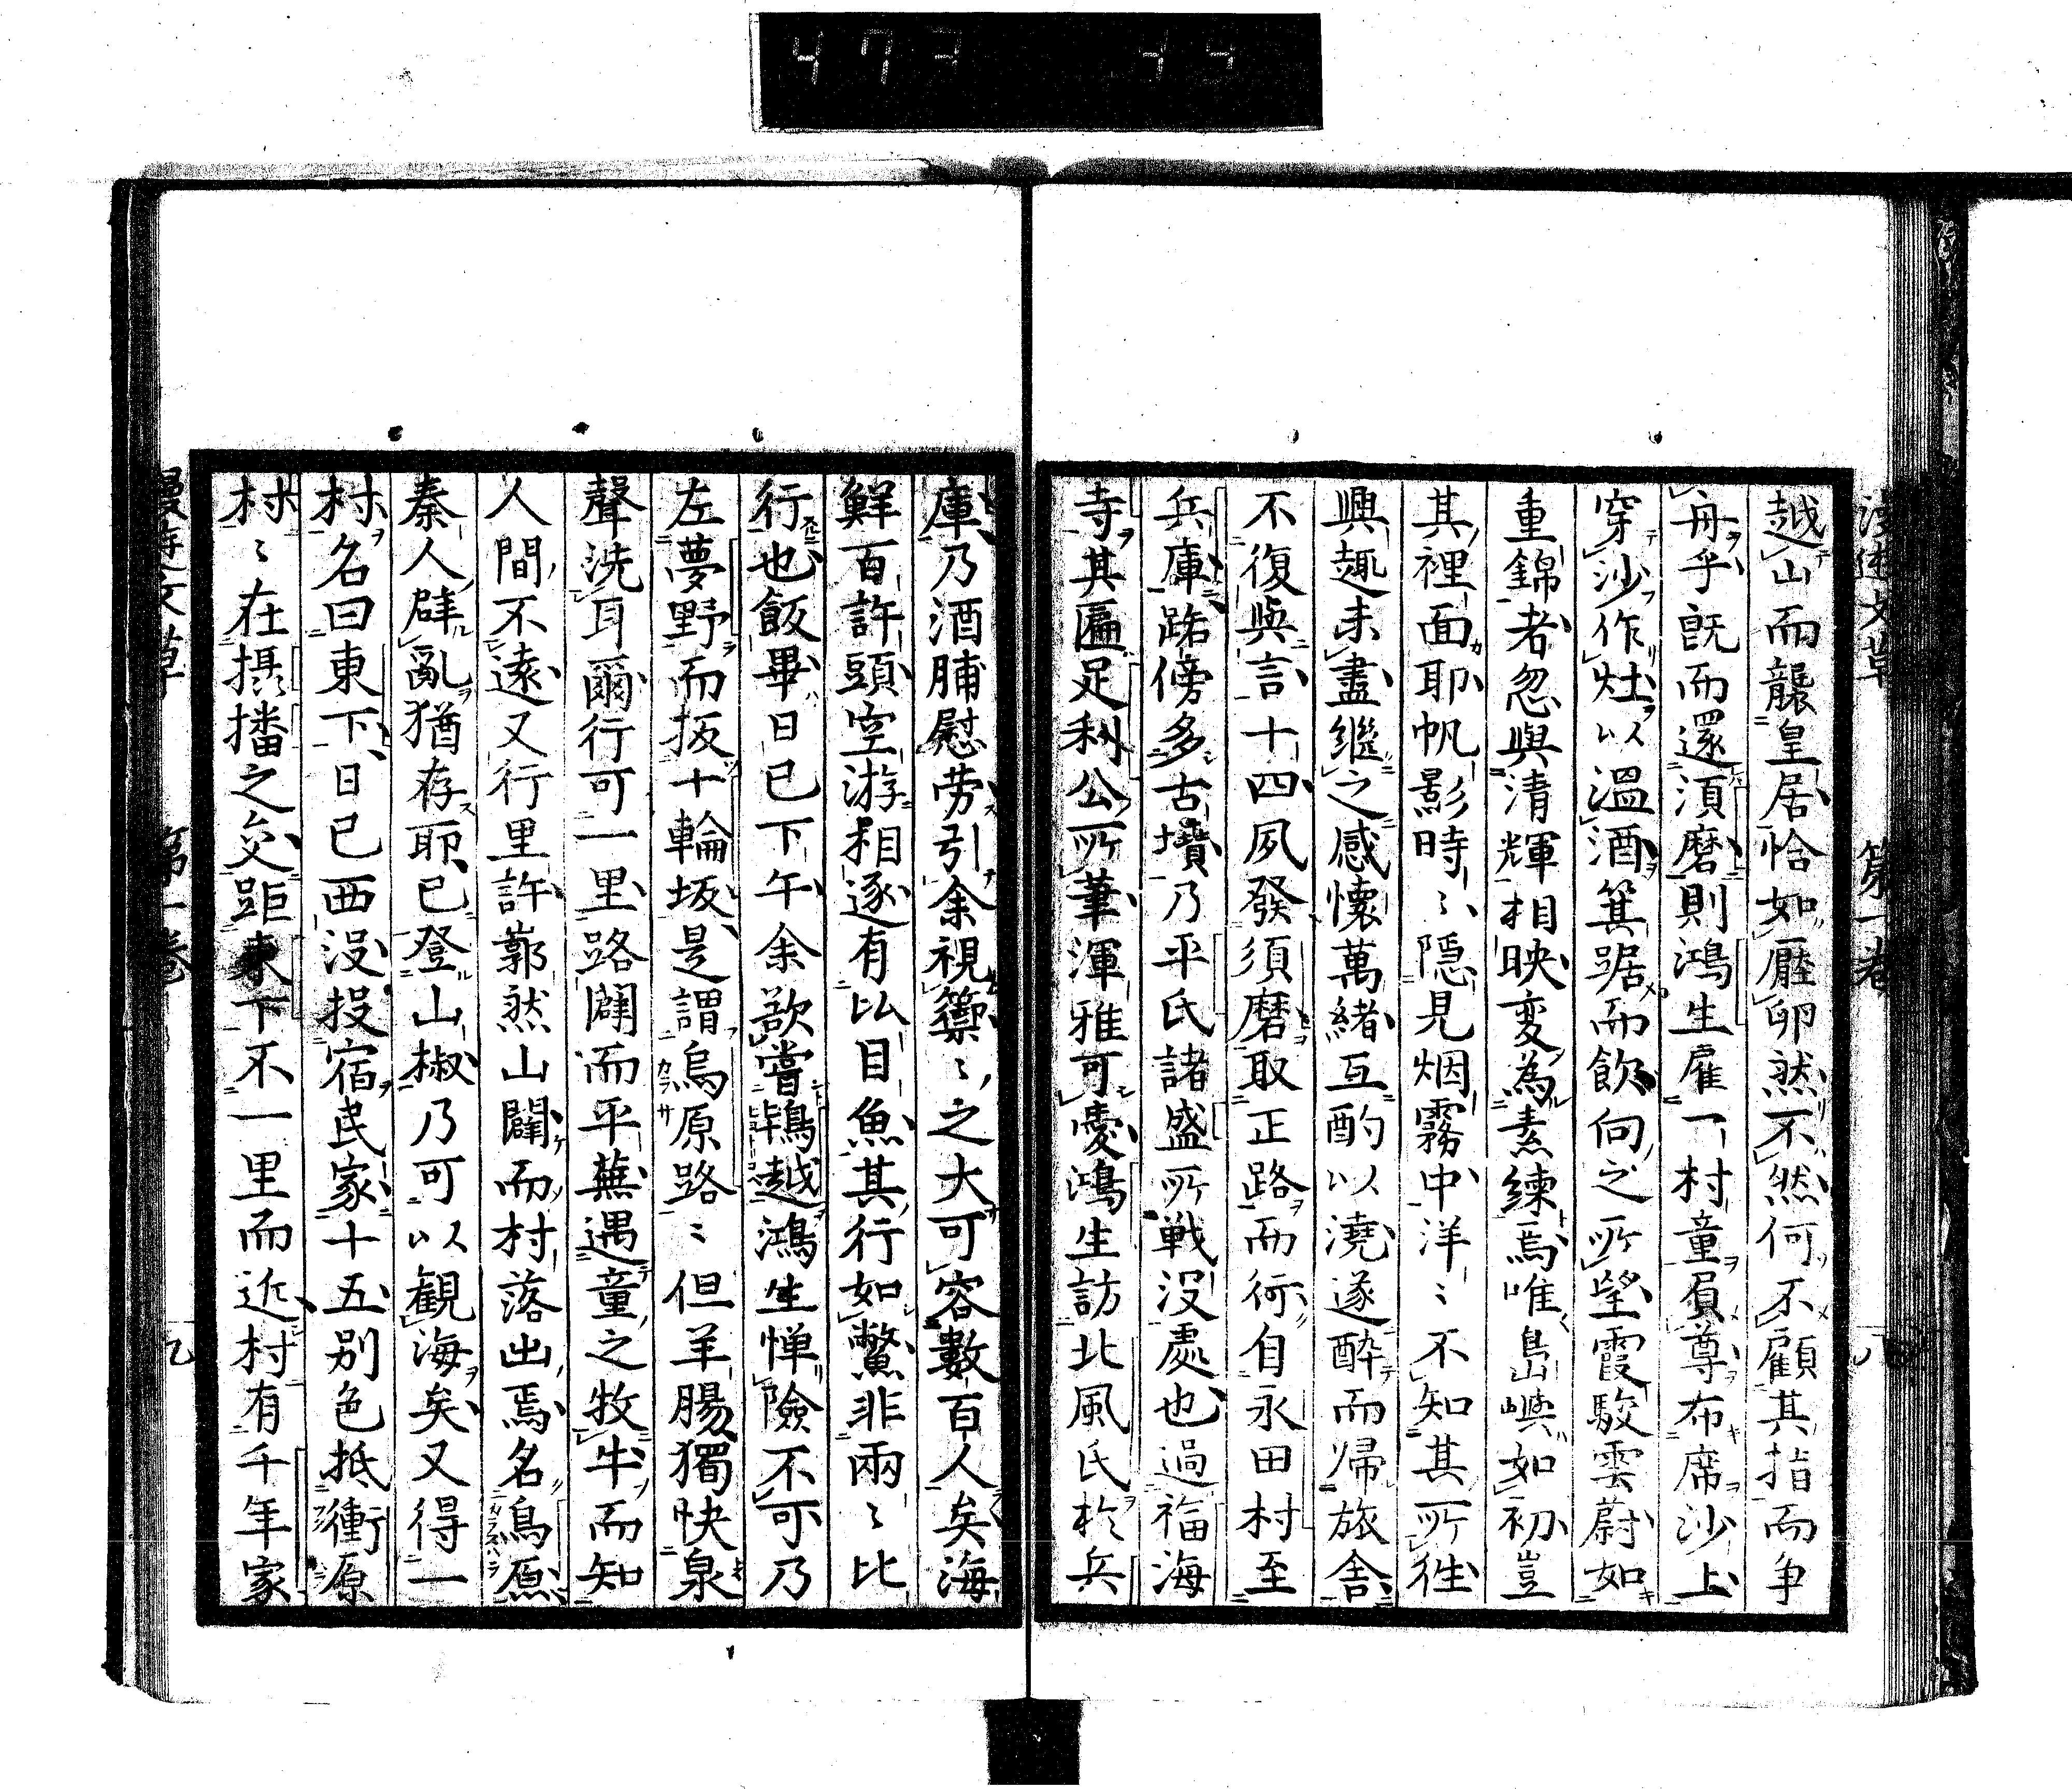 越山而襲皇居恰如壓卵然不然何不顧其指而争
舟乎既而還須磨則鴻生雇一村童屓尊布席沙上
穿沙作灶以温酒箕踞而飲向之所望霞駿雲蔚如
重錦者忽與清輝相映変為素練焉唯島嶼如初豈
其裡面耶帆影時〻隠見烟霧中洋〻不知其所徃
興趣未盡継之感懐萬緒互酌以澆遂酔而帰旅舎
不復與言十四夙發須磨取正路而行自永田村至
兵庫路傍多古墳乃平氏諸盛所戦没處也過福海
寺其匾足利公所筆渾雅可愛鴻生訪北風氏於兵
庫乃酒脯慰労引余視籞〻之大可容數百人矣海
鮮百許頭空游相逐有比目魚其行如鱉非兩〻比
行也飯畢日已下午余欲嘗鵯越鴻生惮險不可乃
左夢野而扳十輪坂是謂烏原路〻但羊腸獨快泉
聲洗耳爾行可一里路闢而平蕪遇童之牧牛而知
人間不遠又行里許嶄然山闢而村落出焉名烏原
秦人辟亂猶存耶已登山椒乃可以観海矣又得一
村名曰東下日已西没投宿民家十五别色抵衝原
村〻在摂播之交距東下不一里而近村有千年家
漫遊文草 第一巻 八
漫遊文草 第一巻 九